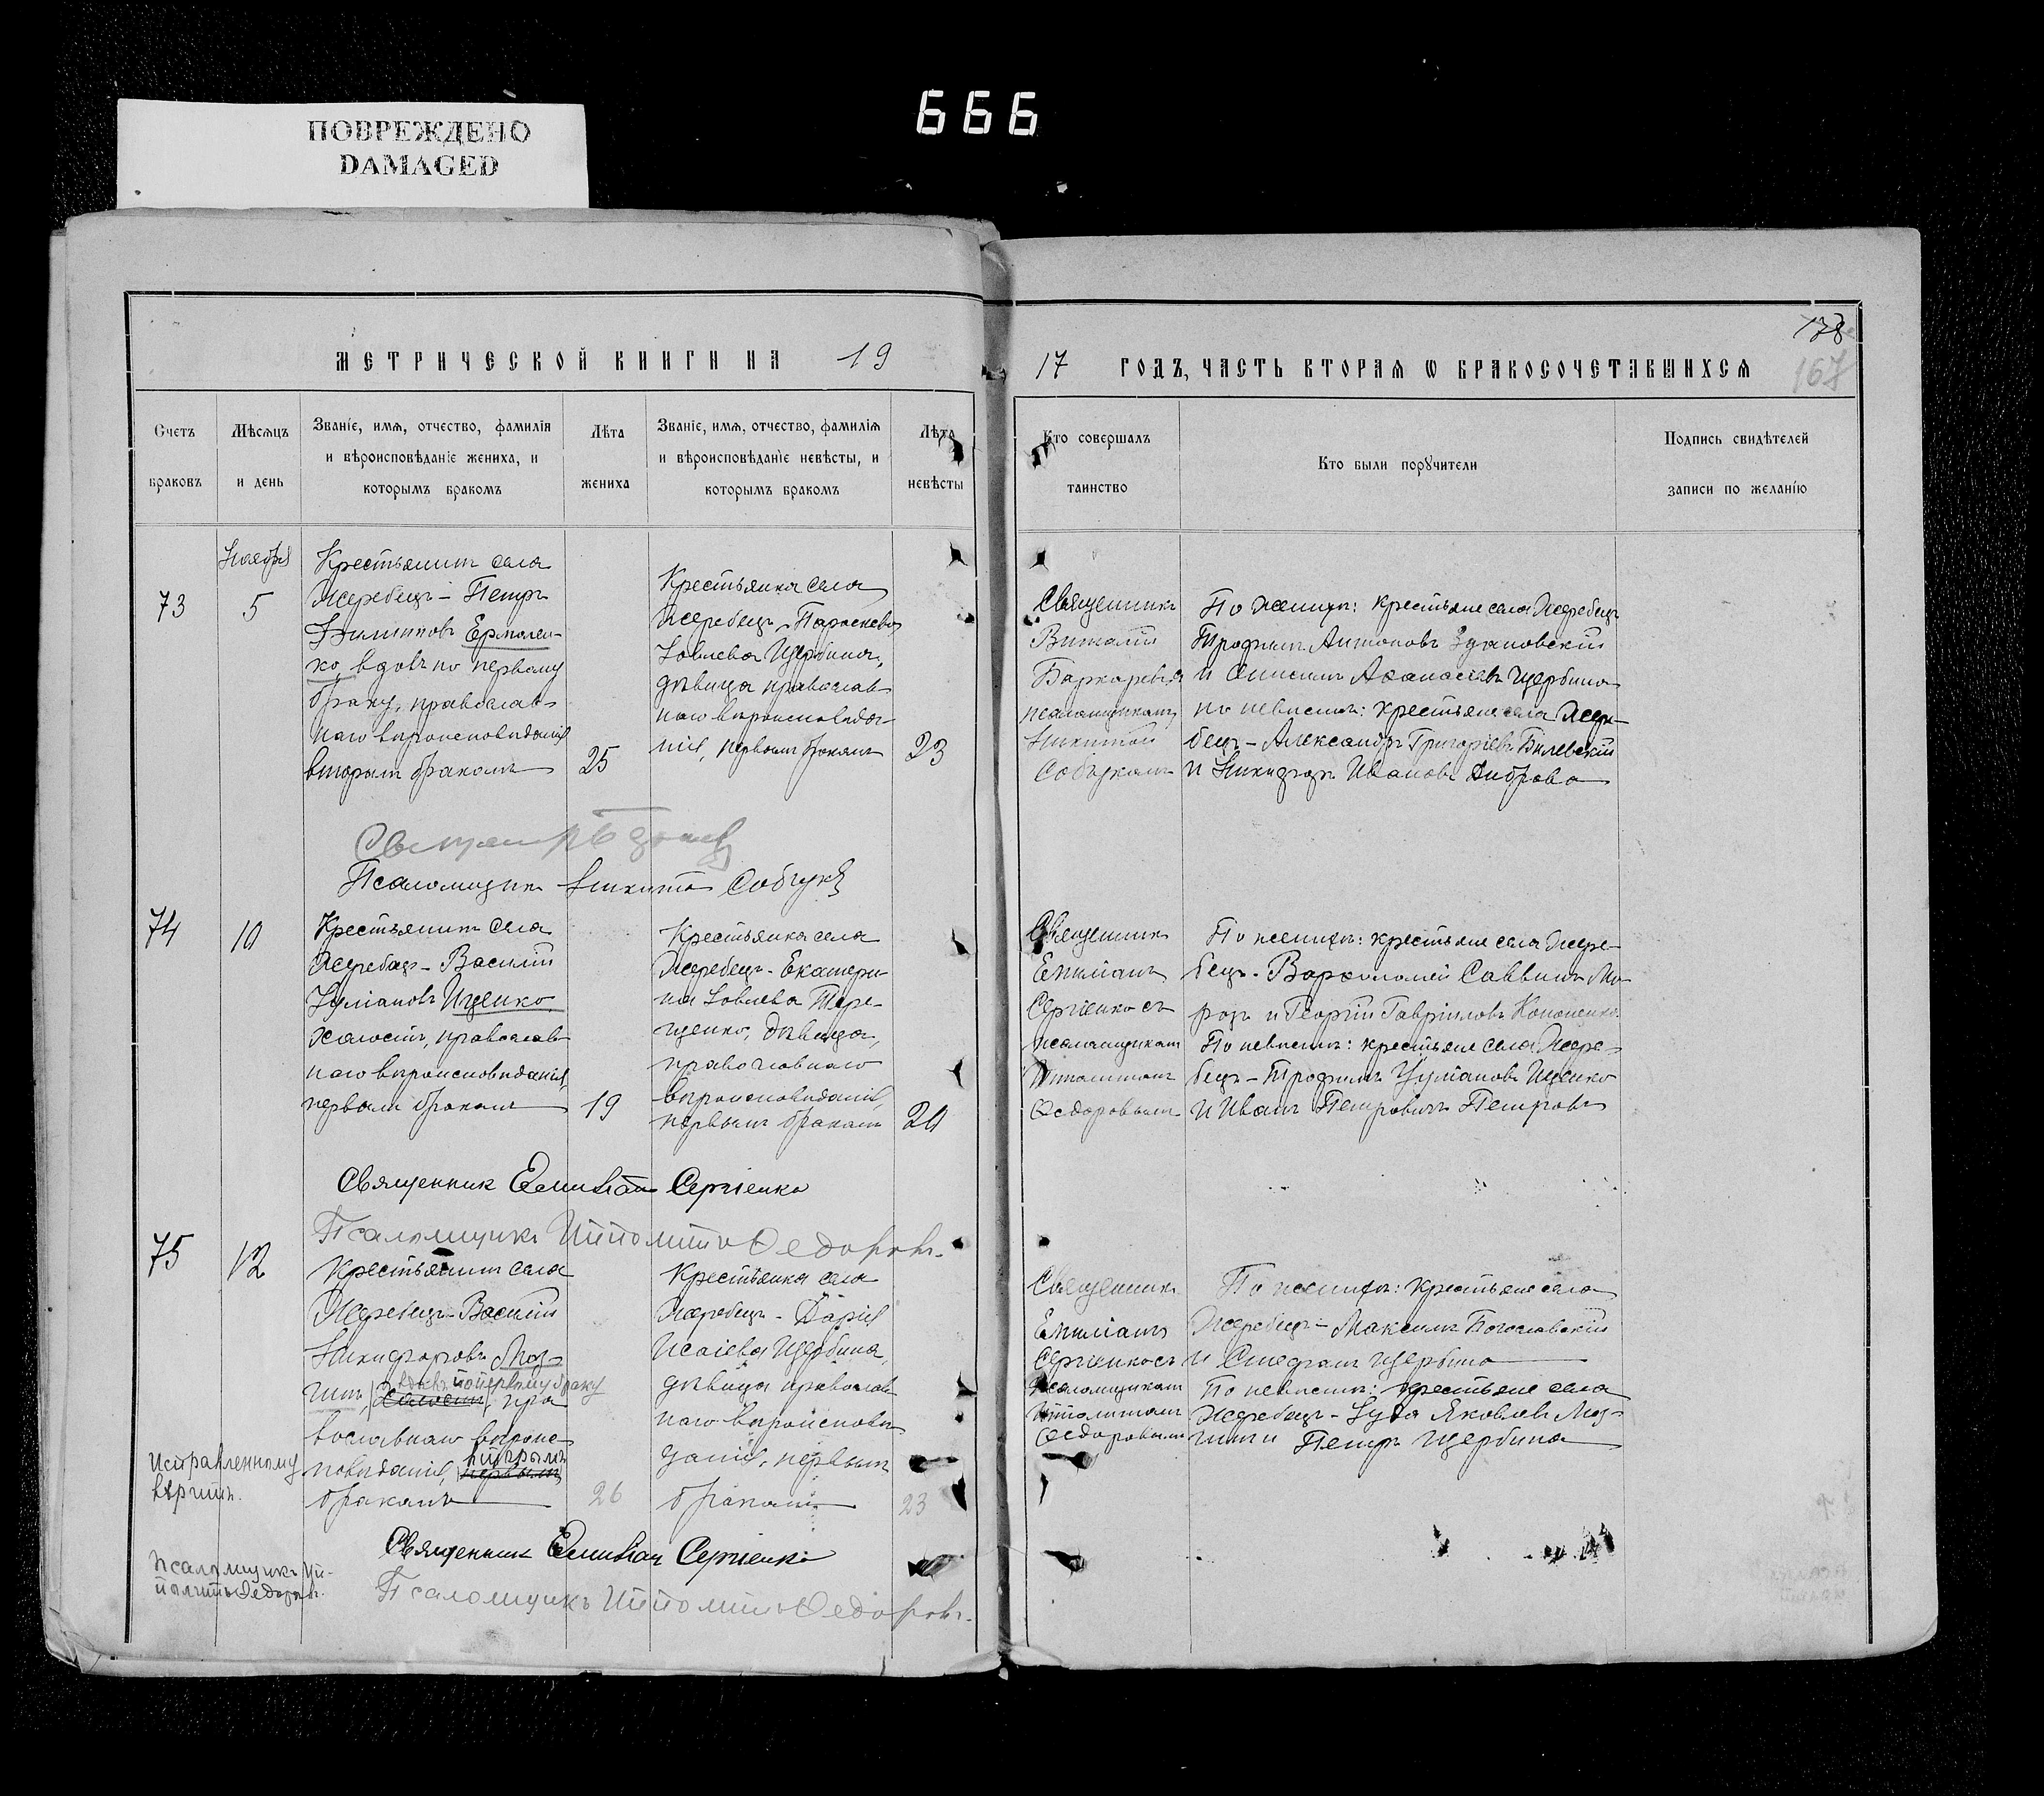 666
ПОВРЕЖДЕНО
DAMAGED
МЕТРИЧЕСКОЙ КНИГИ НА 19
17 ГОДЪ, ЧАСТЬ ВТОРАЯ Ѡ БРАКОСОЧЕТАВШИХСЯ
178
167
Счетъ браковъ
Мѣсяцъ и день
Званіе, имя, отчество, фамилія
и вѣроисповѣданіе жениха, и
которымъ бракомъ
Лѣта жениха
Званіе, имя, отчество, фамилія
и вѣроисповѣданіе невѣсты, и
которымъ бракомъ
Лѣта невѣсты
Кто совершалъ
таинство
Кто были поручители
Подпись свидѣтелей
записи по желанію
73
Ноября
5
Крестьянинъ села
Жеребецъ - Петръ
Филиповъ Ермолен-
ко, вдовъ по первому
браку, православ-
наго вѣроисповѣданія
вторымъ бракомъ
25
Крестьянка села
Жеребецъ - Параскева
Іовлева Щербина,
дѣвица православ-
наго вѣроисповѣда-
нія, первымъ бракомъ
23
Священникъ
Виталій
псаломщикомъ
Никитой
Собчукомъ
По женихѣ: крестьяне села Жеребецъ
Трофимъ Антоновъ Здановскій
и Анисимъ Аѳанасіевъ Щербина
по невѣстѣ: крестьяне села Жере-
бецъ - Александръ Григоріевъ Билевскій
и Никифоръ Ивановъ Диброва
Псаломщикъ Никита Собчукъ
74
10
Крестьянинъ села
Жеребецъ - Василій
Іуліановъ Ищенко
холостъ, православ-
наго вѣроисповѣданія,
первымъ бракомъ
19
Крестьянка села
Жеребецъ - Екатери-
на Іовлева Тере-
щенко, дѣвица,
православнаго
вѣроисповѣданія,
первымъ бракомъ
20
Священникъ
Емиліанъ
Сергіенко съ
псаломщикомъ
Ипполитомъ
Ѳедоровымъ
По женихѣ: крестьяне села Жере-
бецъ - Варѳоломей Саввинъ Мо-
розъ и Георгій Гавріиловъ Кононенко.
По невѣстѣ: крестьяне села Жере-
бецъ - Трофимъ Іуліановъ Ищенко
и Иванъ Петровичъ Петровъ
Священникъ Емиліанъ Сергіенко
Псаломщикъ Ипполитъ Ѳедоровъ.
75
12
Крестьянинъ села
Жеребецъ - Василій
Никифоровъ Моз-
вдовъ по первому браку
гинъ, холостъ, пра
вославнаго вѣроис-
вторымъ
повѣданія, первымъ
бракомъ
26
Крестьянка села
Жеребецъ - Дарія
Исаіева Щербина,
дѣвица православ
наго вѣроисповѣ-
данія, первымъ
бракомъ
23
Священникъ
Емиліанъ
Сергіенко съ
псаломщикомъ
Ипполитомъ
Ѳедоровымъ
По женихѣ: крестьяне села
Жеребецъ - Максимъ Богославскій
и Стефанъ Щербина
По невѣстѣ: крестьяне села
Жеребецъ - Іуда Яковлевъ Моз-
гинъ и Петръ Щербина
Исправленному
вѣрить.
Псаломщикъ Ип-
политъ Ѳедоровъ.
Священникъ Емиліанъ Сергіенко
Псаломщикъ Ипполитъ Ѳедоровъ.